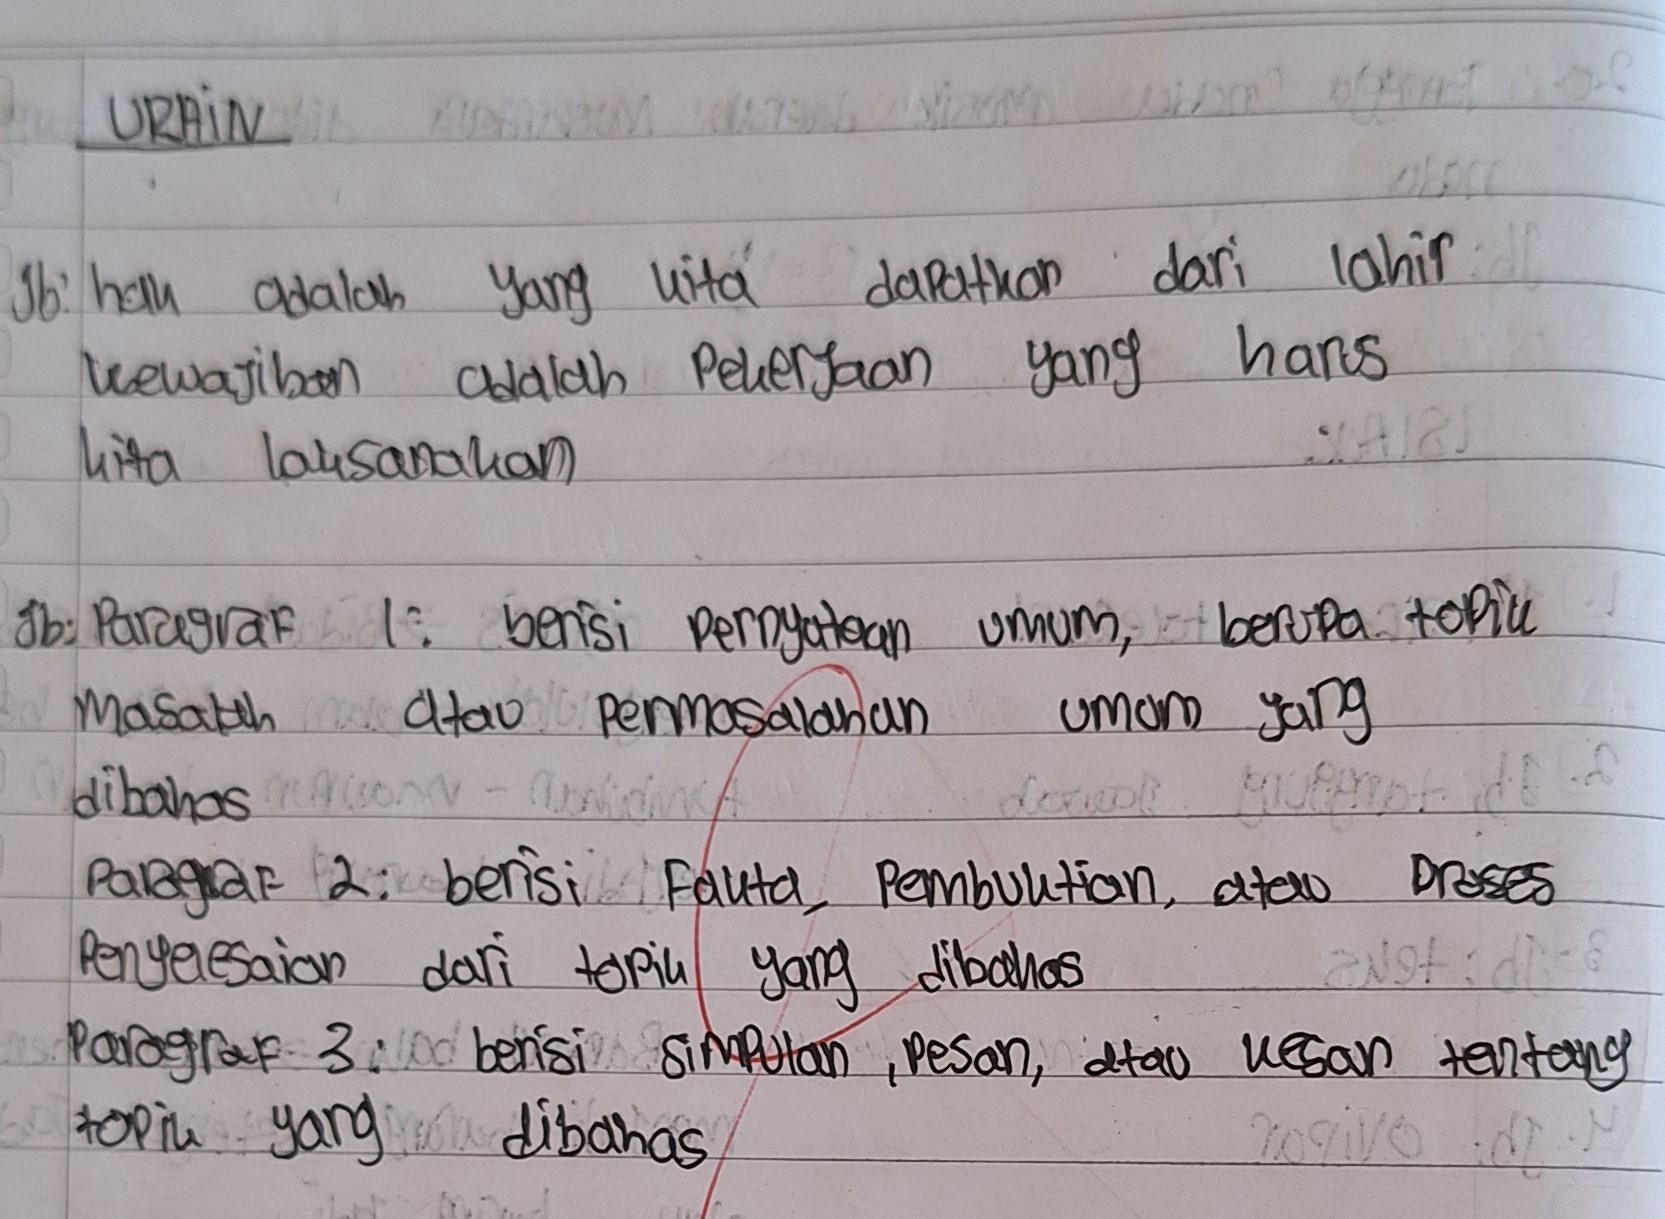 URAIN
Jb: hak adalah yang kita dapatkan dari lahir
kewajiban adalah Pekerjaan yang harus
kita laksanakan
Jb: Paragraf 1: berisi pernyataan umum, berupa topik
masalah atau permasalahan umum yang
dibahas
Paragraf 2: berisi Fakta, Pembuktian, atau Proses
Penyelesaian dari topik yang dibahas
Paragraf 3: berisi simpulan, pesan, atau kesan tentang
topik yang dibahas